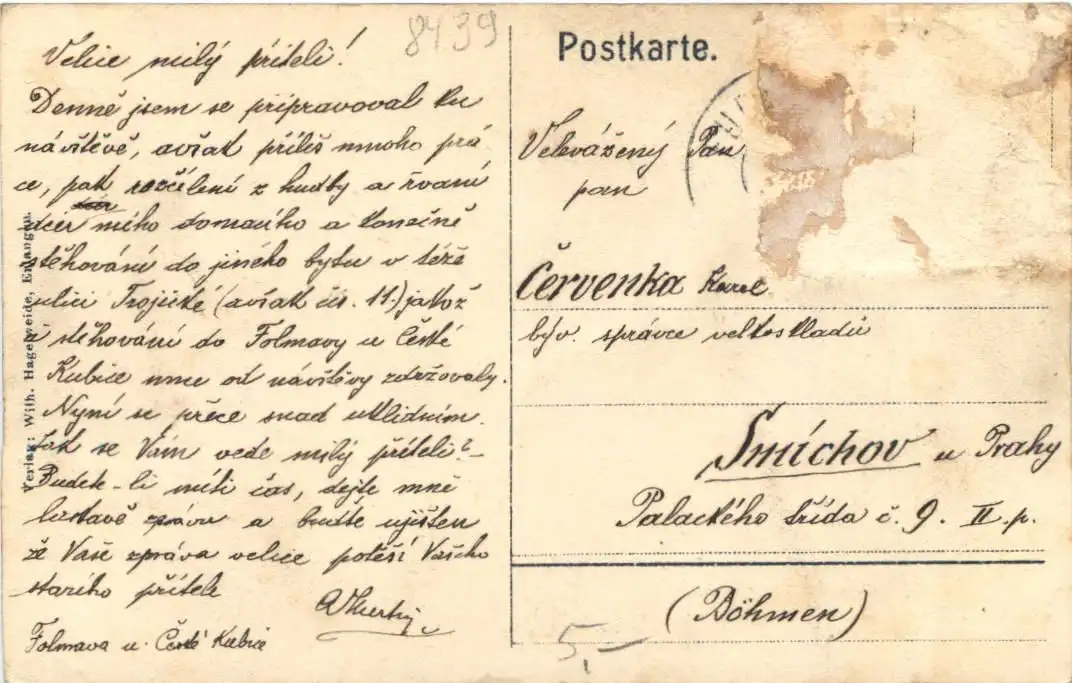 8439
Velice milý příteli!
Denně jsem se připravoval ku
návštěvě, avšak příliš mnoho prá
ce, pak rozčílení z hudby a řvaní
dcer mího domacího a konečně
stěhování do jiného bytu v téže
ulici Trojické (avšak čís. 11.) jakož
i stěhování do Folmavy u České
Kubice mne od návštěvy zdržovaly.
Nyní se přece snad uklidním.
Jak se Vám vede milý příteli?-
Budete-li míti čas, dejte mně
laskavě zprávu a buďte ujištěn
že Vaše zpráva velice potěší Vašeho
starího přítele
Folmava u České Kubice
Verlag: Wilh. Hagerweide, Erlangen.
Postkarte.
Velevážený Pan
pan
Červenka Karel
býv. správce velkoskladů
Smíchov u Prahy
Palackého třída č. 9. II. p.
(Böhmen)
5,-